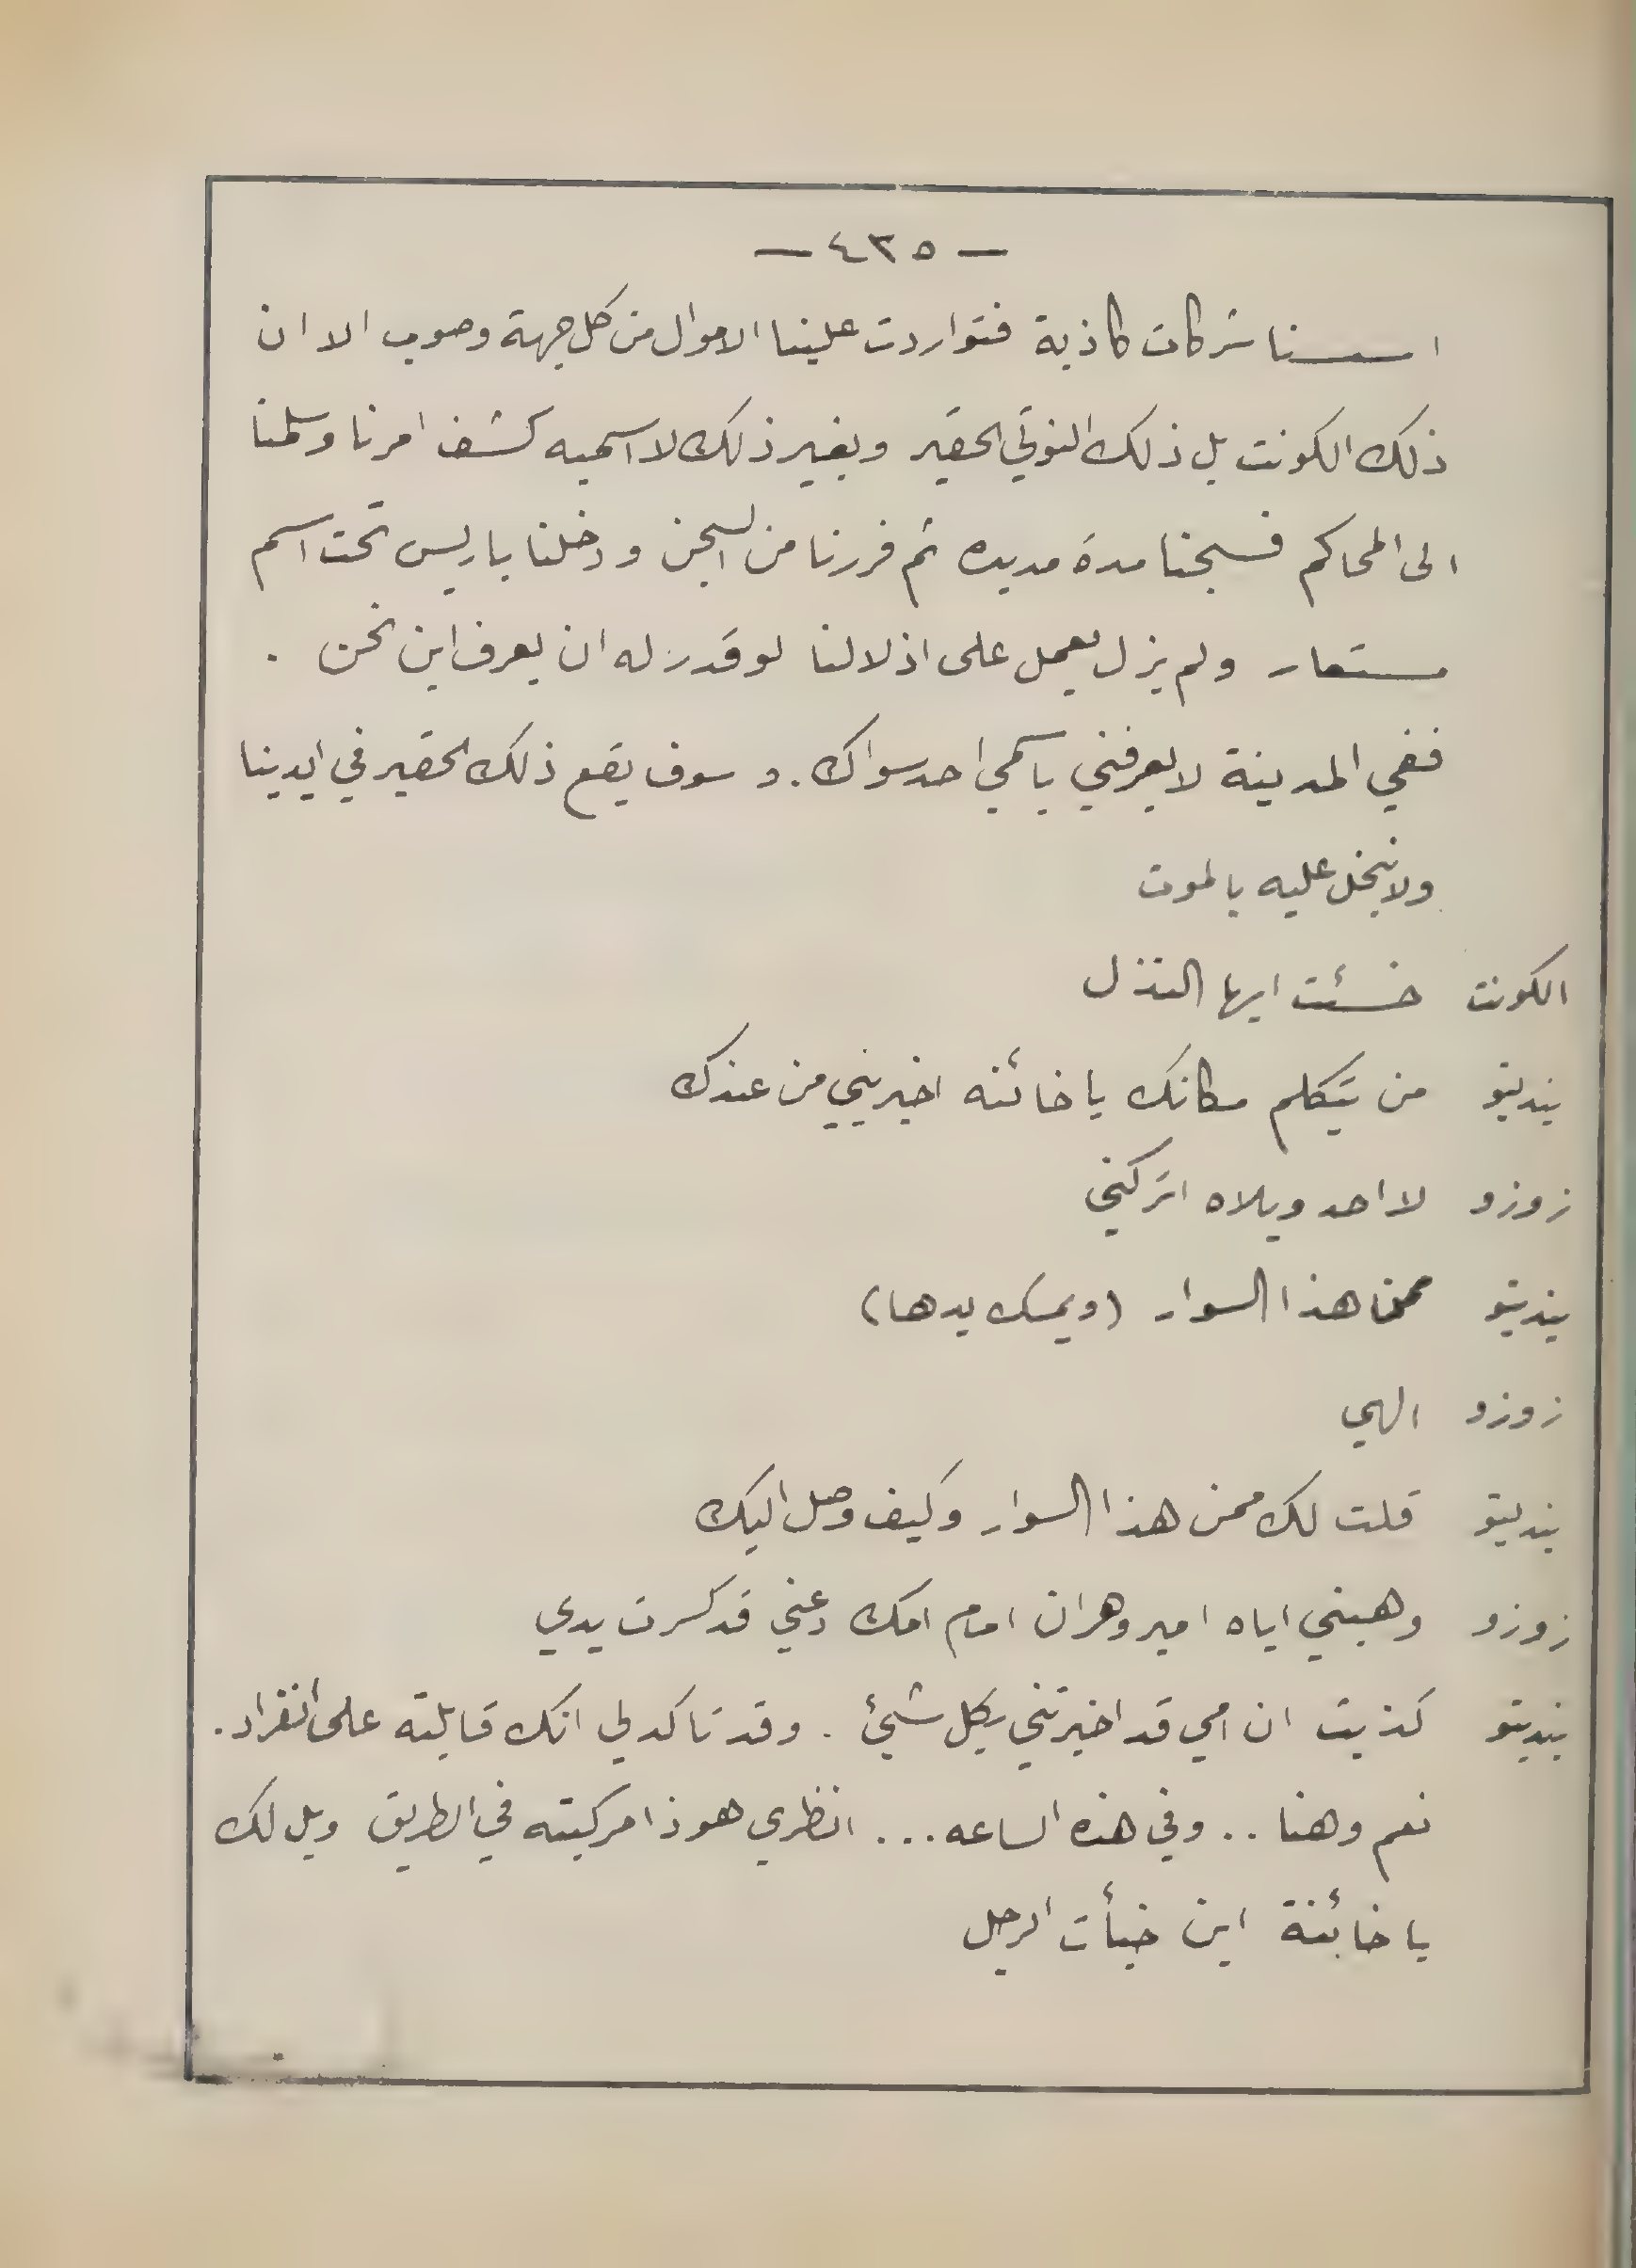 — ٤٣٥ —
اسسنا شركات كاذبة فتواردت علينا الاموال من كل جهة وصوب الا ان
ذلك الكونت بل ذلك النوتي الحقير وبغير ذلك لا اسميه كشف امرنا وسلمنا
الى المحاكم فسجنا مدة مديده ثم فررنا من السجن ودخلنا باريس تحت اسم
مستعار ولم يزل يعمل على اذلالنا لو قدر له ان يعرف اين نحن .
ففي المدينة لا يعرفني باسمي احد سواك . و سوف يقع ذلك الحقير في ايدينا
ولا نبخل عليه بالموت
الكونت خسئت ايها النذل
بنديتو من يتكلم مكانك يا خائنه اخبريني من عندك
زوزو لا احد ويلاه اتركني
بنديتو ممن هذا السوار (ويمسك يدها)
زوزو الهي
بنديتو قلت لك ممن هذا السوار وكيف وصل اليك
زوزو وهبني اياه امير وهران امام امك دعني قد كسرت يدي
بنديتو كذبت ان امي قد اخبرتني بكل شيئ . وقد تاكد لي انك قابلته على انفراد .
نعم وهنا .. وفي هذه الساعه ... انظري هوذا مركبته في الطريق ويل لك
يا خائنة اين خبأت الرجل